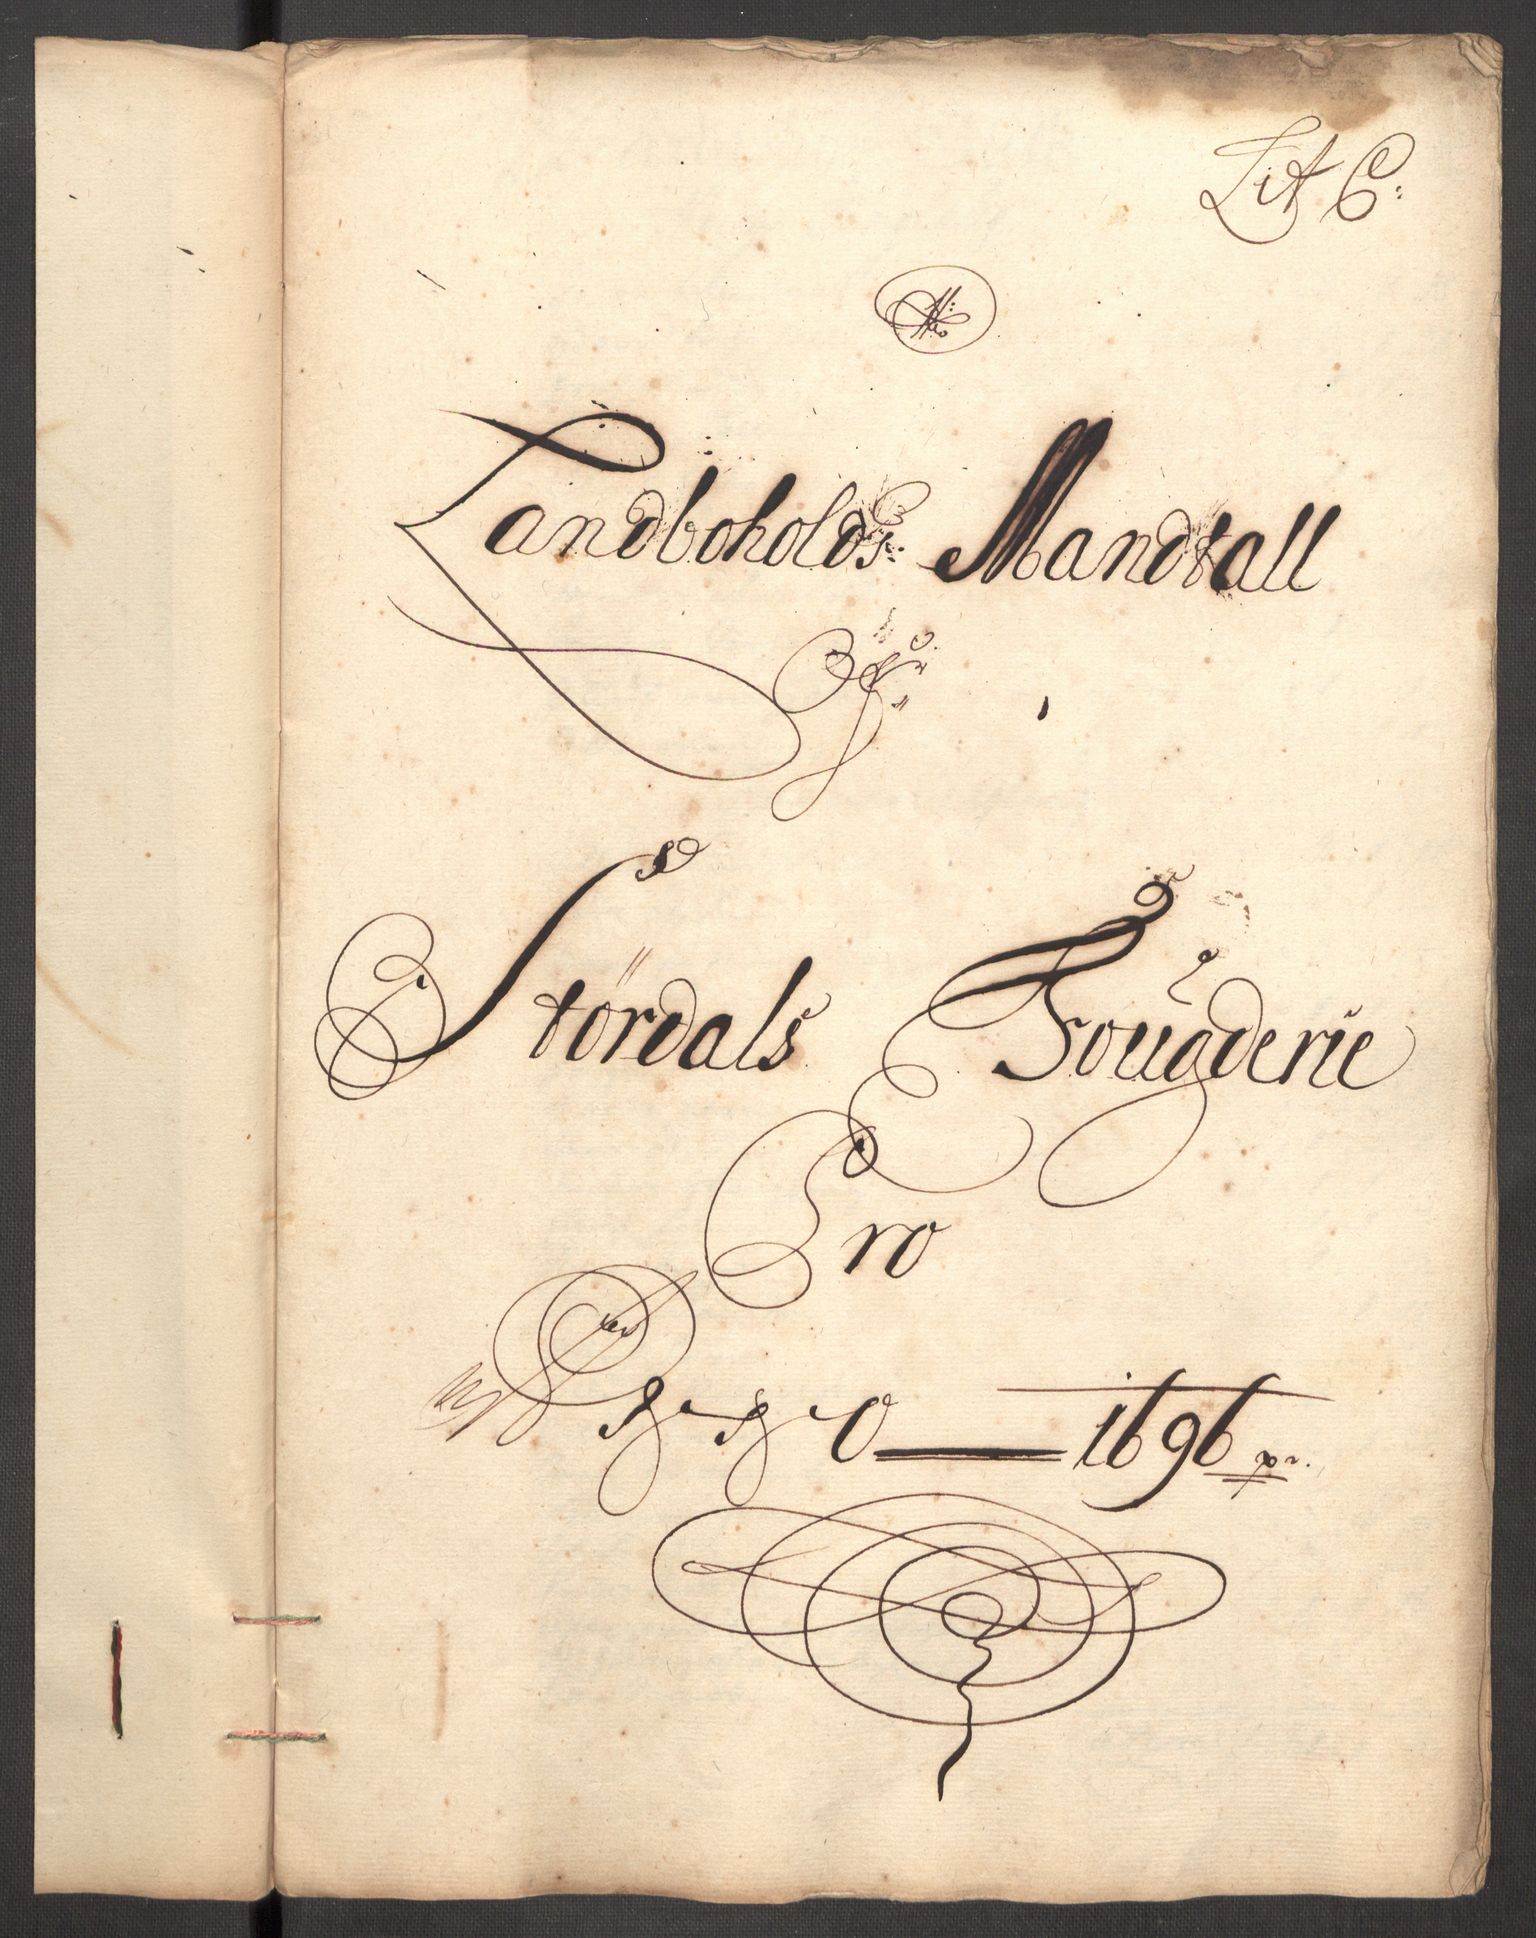 Lit C:
Landboholds Mandtall
Stördals Fougderie
Pro
Anno 1696